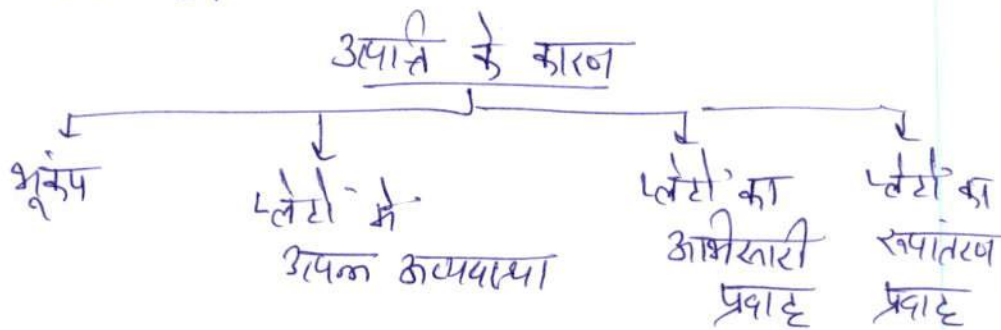 उत्पत्ति के कारण
भूकंप
प्लेटों में
उत्पन्न अव्यवस्था
प्लेटों का
अभिसारी
प्रवाह
प्लेटों का
रूपांतरण
प्रवाह